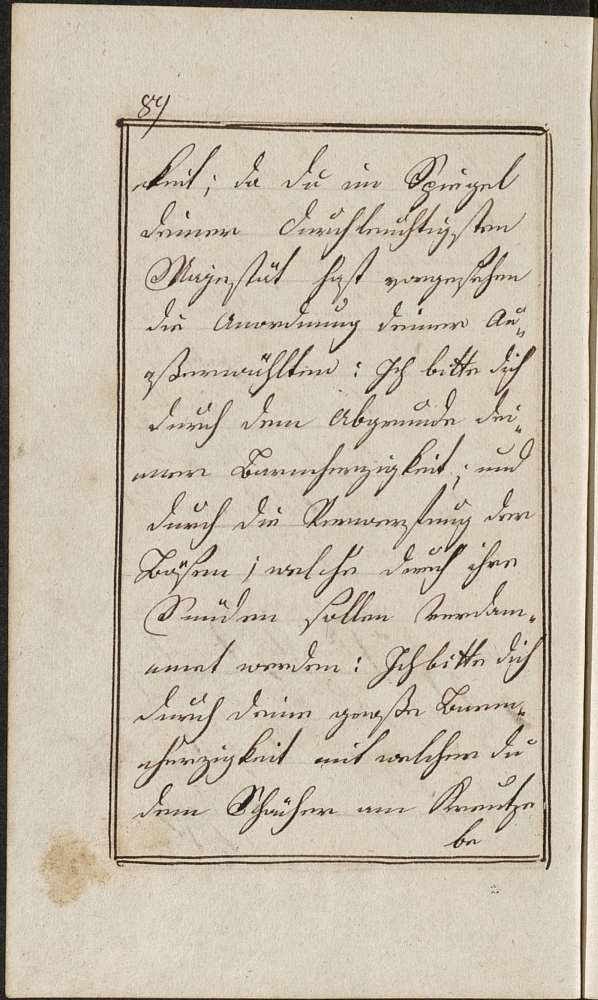 84
keit; da du im Spiegel
deiner durchleuchtigsten
Majestät hast vorgesehen
die Anordnung deiner Au„
ßerwählten: Ich bitte dich
durch dem Abgrunde dei„
ner Barmherzigkeit; und
durch die Verwerfung der
Bösen; welche durch ihre
Sünden sollen verdam„
met werden: Ich bitte dich
durch deine große Barm„
herzigkeit mit welcher du
dem Schächer am Kreutze
be